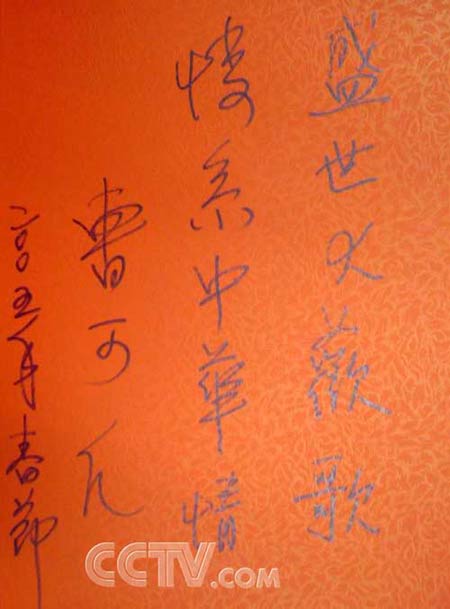 盛世大歡歌
系中華情
曹可凡
二〇〇五年春節
CCTV.com